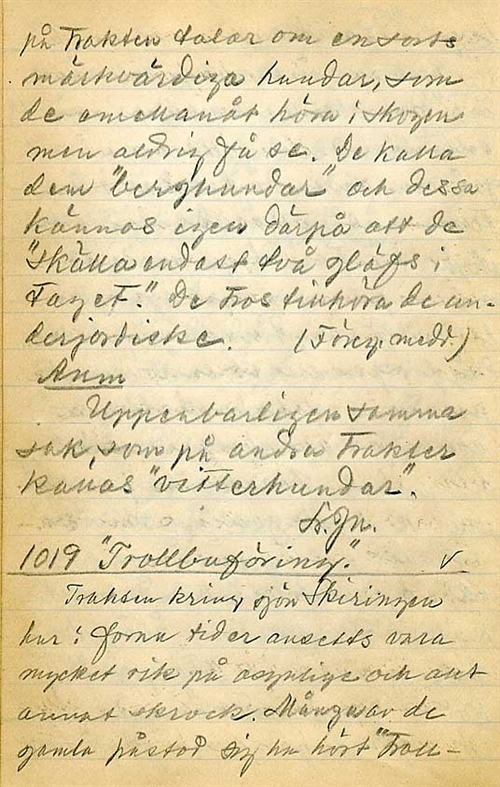 på trakten talar om en sorts
märkvärdiga hundar, som
de emellanåt höra i skogen
men aldrig få se. De kalla
dem "berghundar" och dessa
kännas igen därpå att de
"skälla endast två gläfs i
taget." De tros tillhöra de un-
derjordiske. (Föreg. medd.)
Anm
Uppenbarligen samma
sak, som på andra trakter
kallas "vitterhundar".
1019 "Trollbuföring". V
Trakten kring sjön Skiringen
har i forna tider ansetts vara
mycket rik på osynlige och allt
annat skrock. Många av de
gamla påstod sig ha hört "Troll-